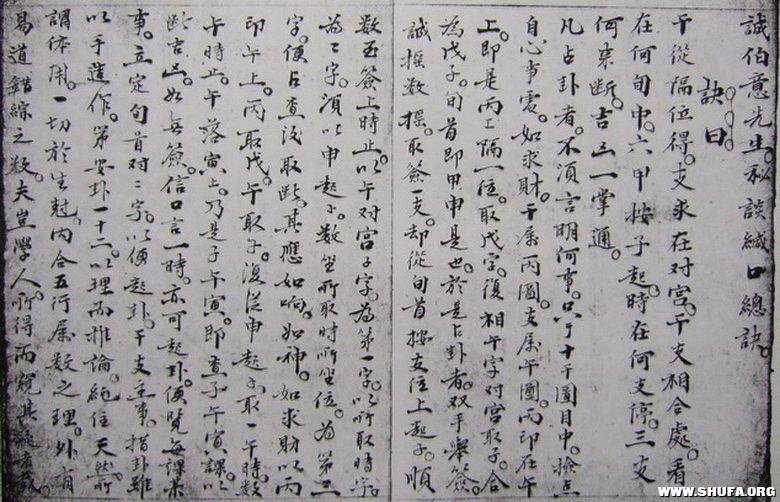 誠伯意先生。秘談緘口總訣。
訣曰。
干從隔位得。支求在对宫。干支相合處。看
在何旬中。六甲按子起。時在何支停。三支
何来断。吉亡一掌通。
凡占卦者。不須言明何事。只于十干圖目中。檢点
自心事電。如求財。干屬丙圖。支屬午圖。丙印在午
上。即是丙上隔一位。取戊字。復相午字对宫。取子。合
為戊子。旬首即甲申是也。於是占卦者。双手舉簽。
誠摇数摇。取簽一支。却從旬首按支位上起子。順
数至簽上時止。以午对宫子字。為第一字。以所取時字。
為二字。須以申起子。数至所取時所坐位。為第三
字。便占查後取断。其應如响。如神。如求財以丙
印午上。丙取戊。午取子。復從申起子。取一午時。数
午時止。午落寅上。乃是子午寅。即查子午寅課。以
断吉凶。如無簽。信口言一時。亦可起卦。便覽每課来
事。立定旬首对二字。以便起卦。干支主事。措卦雖
以手造作。第安卦一十二。以理而推論。純任天然所
謂体用。一切於生尅。内合五行屬数之理。外有
易道錯綜之数。夫豈學人所得而窥其疑者哉。
WWW.SHUFA.ORG